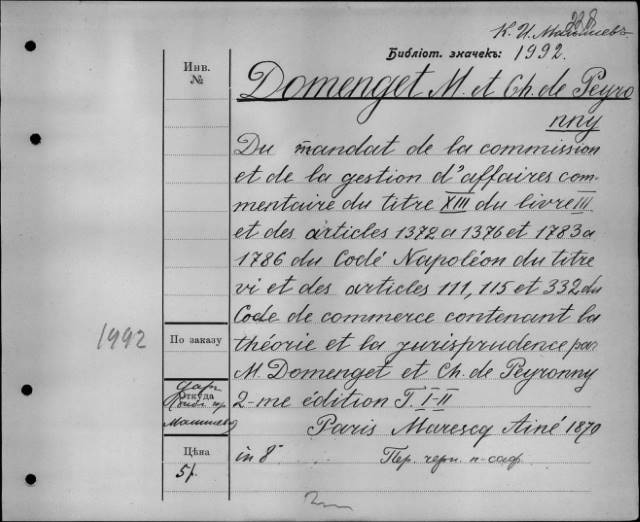 228
К. И. Малышевъ
Библіот. значекъ: 1992.
Инв.
№
Domenget M. et Ch. de Peyro
nny
Du mandat de la commission
et de la gestion d'affaires com-
mentaire du titre XIII du livre III
et des articles 1372 a 1376 et 1783 a
1786 du Codé Napoléon du titre
vi et des articles 111, 115 et 332 du
Code de commerce contenant la
1992
По заказу
théorie et la jurisprudence par
M. Domenget et Ch. de Peyronny
даръ
Откуда
2-me édition T. I-II
Малышева
Paris Marescq Ainé 1870
Цѣна
in 8°
Пер. черн. п-саф.
5 р.